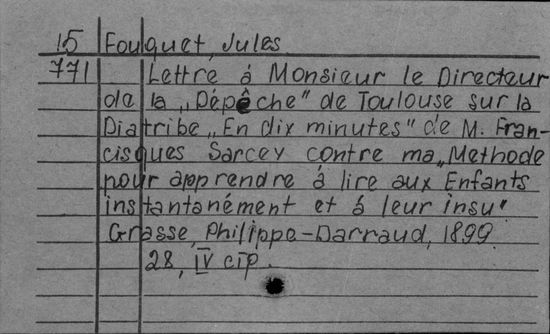 15 Fouquet, Jules.
771 Lettre á Monsieur le Directeur
de la „Dépêche" de Toulouse sur la
Diatribe „En dix minutes" de M. Fran-
cisques Sarcey contre ma „Methode
pour apprendre á lire aux Enfants
instantanément et á leur insu"
Grasse, Philippe-Darraud, 1899.
28, IV стр.